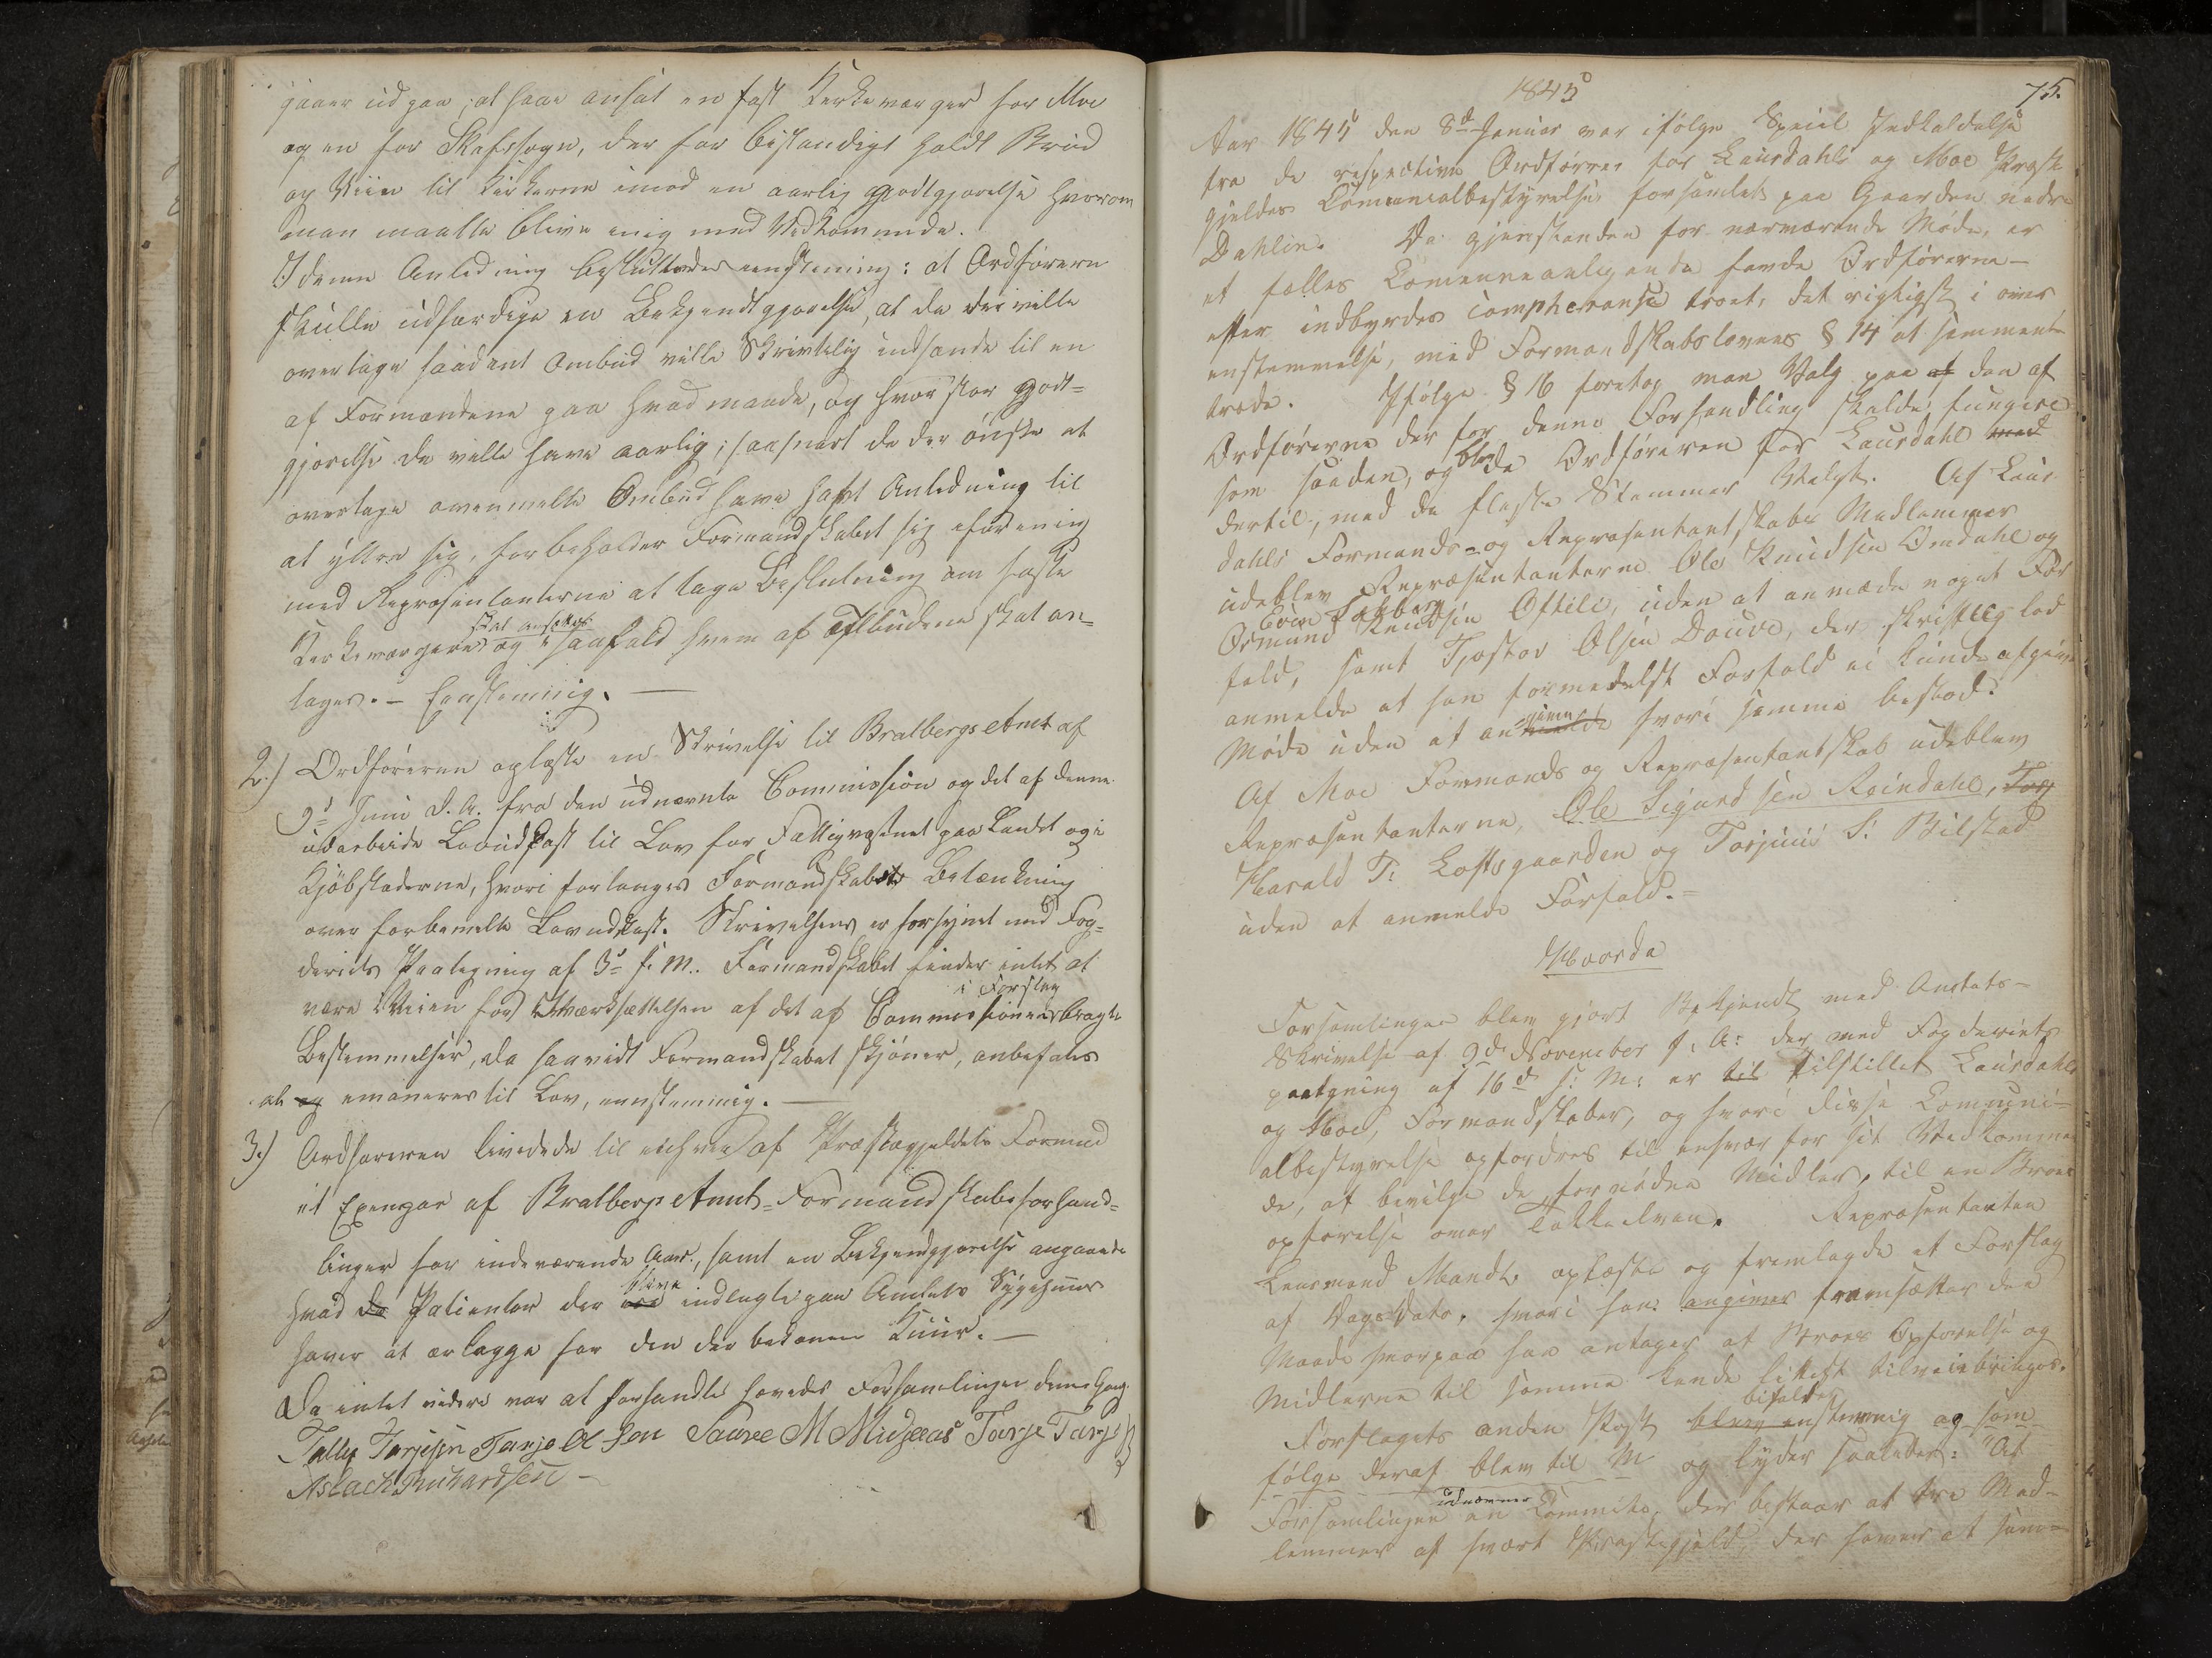 gaaer ud paa, at faae ansat en fast Kirkeværger for Moe
og en for Skafssogn, der har bestandigt holdt Brød
og Viin til Kirkerne imod en aarlig Godtgjørelse hvorom
man maatte blive enig med Vedkommende.
I denne Anledning besluttedes eenstemmig: at Ordføreren
skulle udfærdige en Bekjendtgjørelse, at de der ville
overtage saadant Ombud ville Skrivtelig indsende til en
af Formændene paa hvad maade, og hvor stor Godt=
gjørelse de ville have aarlig; saasnart de der ønske at
overtage ovenmelte Ombud have havt Anledning til
at yttre sig, forbeholder Formandskabet sig iforening
med Repræsentanterne at tage Beslutning om faste
skal ansættes
Kirkeværgere og i saafald hvem af Tilbudene skal an=
tages. – Eenstemmig. —
2.) Ordføreren oplæste en Skrivelse til Bratbergs Amt af
9d Juni d. A. fra den udnævnte Commission og det af denne
udarbeide Lovudkast til Lov for Fattigvæsenet paa Landet og i
Kjøbstæderne, hvori forlanges Formandskabets Betænkning
over forbemelte Lovudkast. Skrivelsen er forsynet med Fog=
deriets Paategning af 3d f. M. Formandskabet finder intet at
i Forslag
være i Veien for Iværksættelsen af det af Commissionen bragte
Bestemmelser, da saavidt Formandskabet skjønner, anbefales
at og emaneres til Lov, eenstemmig. —
3.) Ordføreren leverede til enhver af Præstegjeldets Formænd
et Exemplar af Bratbergs Amts=Formandskabsforhand=
linger for indeværende Aar, samt en Bekjendtgjørelse angaaende
blive
hvad de Patienter der ere indlagte paa Amtets Sygehuus
haver at erlægge for den der bekomne Kuur. —
Da intet videre var at forhandle hævedes Forsamlingen denne Gang.
Tallef Torjesen Torje Olsen Saavee M Midgaas Torje Torjes
Aslach Richardsen –
1845
75.
Aar 1845 den 8d Januar var ifølge Speciel Indkaldelse
fra de respective Ordførere for Laurdahls og Moe Præste
gjeldes Communalbestyrelse forsamlet paa Gaarden nedre
Dahlen. Da gjenstanden for nærværende Møde, er
et fælles Communeanliggende havde Ordførerne –
efter indbyrdes Compherense troet, det rigtigst i over
enstemmelse, med Formandskabslovens § 14 at sammen
træde. Ifølge § 16 foretog man Valg paa af den af
Ordførerne der for denne Forhandling skulde fungere
som saadan, og blev da Ordføreren for Laurdahl med
dertil, med de fleste Stemmer Valgt. Af Laur
dahls Formands= og Repræsentantskabs Medlemmer
udeblev Repræsentanterne Ole Knudsen Omdahl og
Osmund Knudsen Oftele, uden at anmælde noget For
fald, samt Tjostov Olsen Douve, der skriftlig lod
anmelde at han formedelst Forfald ei kunde afgive
Møde uden at angive hvori samme bestod.
Af Moe Formands og Repræsentantskab udeblev
Repræsentanterne, Ole Sigurdsen Roindahl, Torj
Harald T: Loftsgaarden og Torjuus S: Bilstad
uden at anmelde Forfald. =
Hvorda
Forsamlingen blev gjort Bekjendt med Amtets –
Skrivelse af 9d November f: A: der med Fogderiets
paategning af 16d s: M: er til tilstillet Laurdahls
og Moe, Formandskaber, og hvori disse Communi=
albestyrelse opfordres til enhver for sit Vedkommen
de, at bevilge de fornødne Midler, til en Broes
opførelse over Tokkeelven. Repræsentanten
Lensmand Mandt oplæste og fremlagde et Forslag
af Dags Dato, hvori han angiver fremsætter den
Maade hvorpaa han antager at Broens Opførelse og
Midlerne til samme kunde lettest tilveiebringes.
bifaldtes
Forslagets anden Post blev enstemmig og som
følge deraf blev til M og lyder saaledes: "At
udnævner
Forsamlingen en Committe, der bestaar af tre Med=
lemmer af hvært Præstegjeld, der haver at sam=